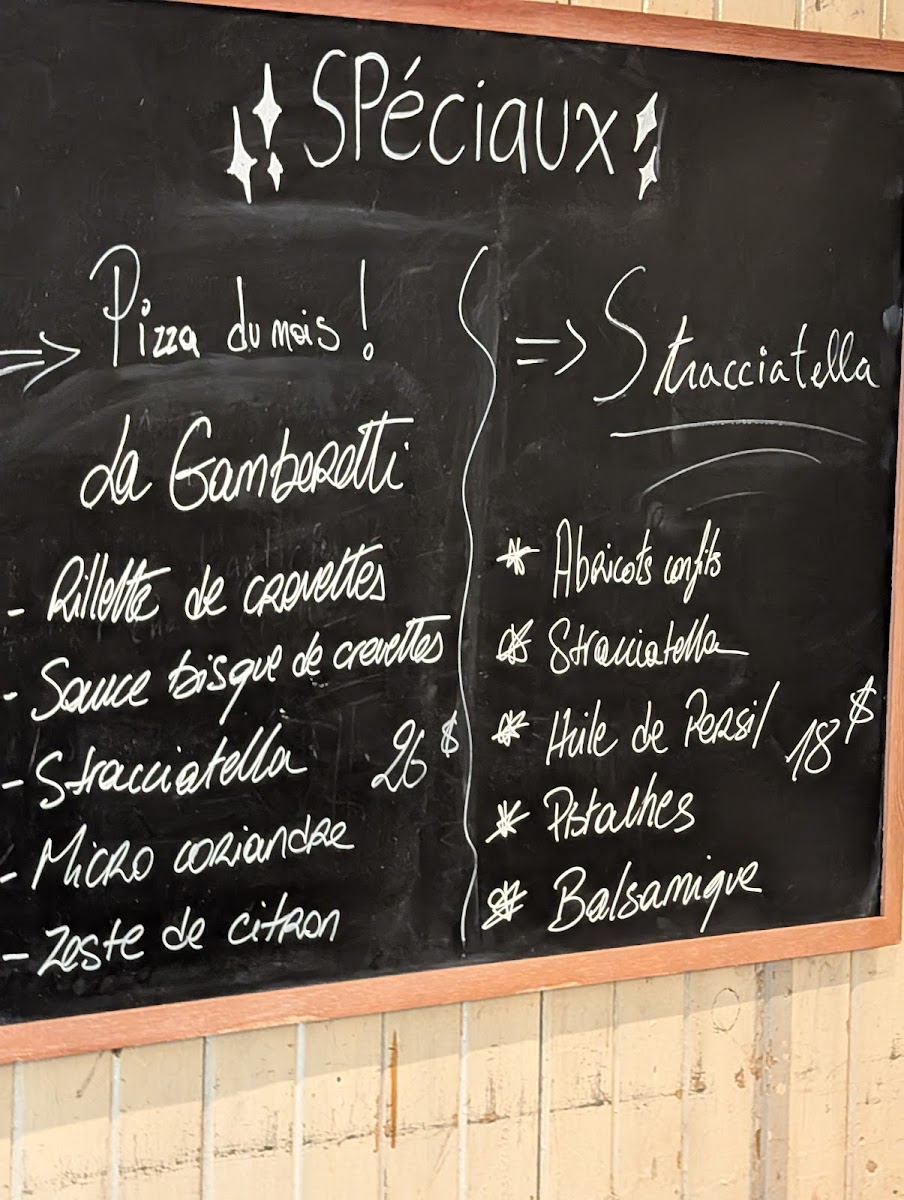 SPéciaux
=> Pizza du mois !
La Gamberetti
- Rillette de crevettes
- Sauce bisque de crevettes
- Stracciatella 26$
- Micro coriandre
- Zeste de citron
=> Stracciatella
* Abricots confits
* Stracciatella
* Huile de Persil 18$
* Pistaches
* Balsamique